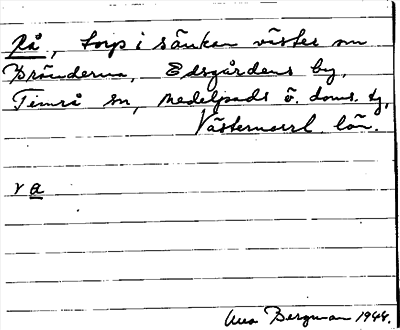 Rå, torp i sänkan väster om
Bränderna, Edsgårdens by,
Timrå sn, Medelpads ö. doms. tg,
Västernorrl. län.
r a
Bergman 1944.